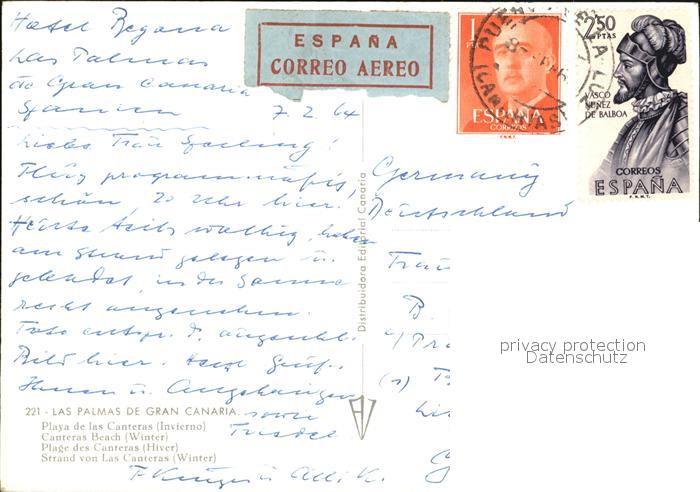 Hotel Begona
Las Palmas
de Gran Canaria
Spanien
7. 2. 64
Liebe Frau
Flug programmäßig,
schön, 20 Uhr hier.
Heute teils wolkig, haben
am Strand gelegen u.
gebadet, in der Sonne
recht angenehm.
Foto entspr. d.
Bild hier.
u. Angehörigen
sowie
u.
ESPAÑA
CORREO AEREO
1
PTA
ESPAÑA
CORREOS
F.N.M.T.
2,50
PTAS
VASCO
NUÑEZ
DE BALBOA
CORREOS
ESPAÑA
F.N.M.T.
PUERTO DE LA LUZ
Germany
Deutschland
Frau
B.
Distribuidora Editorial Canaria
221 - LAS PALMAS DE GRAN CANARIA.
Playa de las Canteras (Invierno)
Canteras Beach (Winter)
Plage des Canteras (Hiver)
Strand von Las Canteras (Winter)
privacy protection
Datenschutz